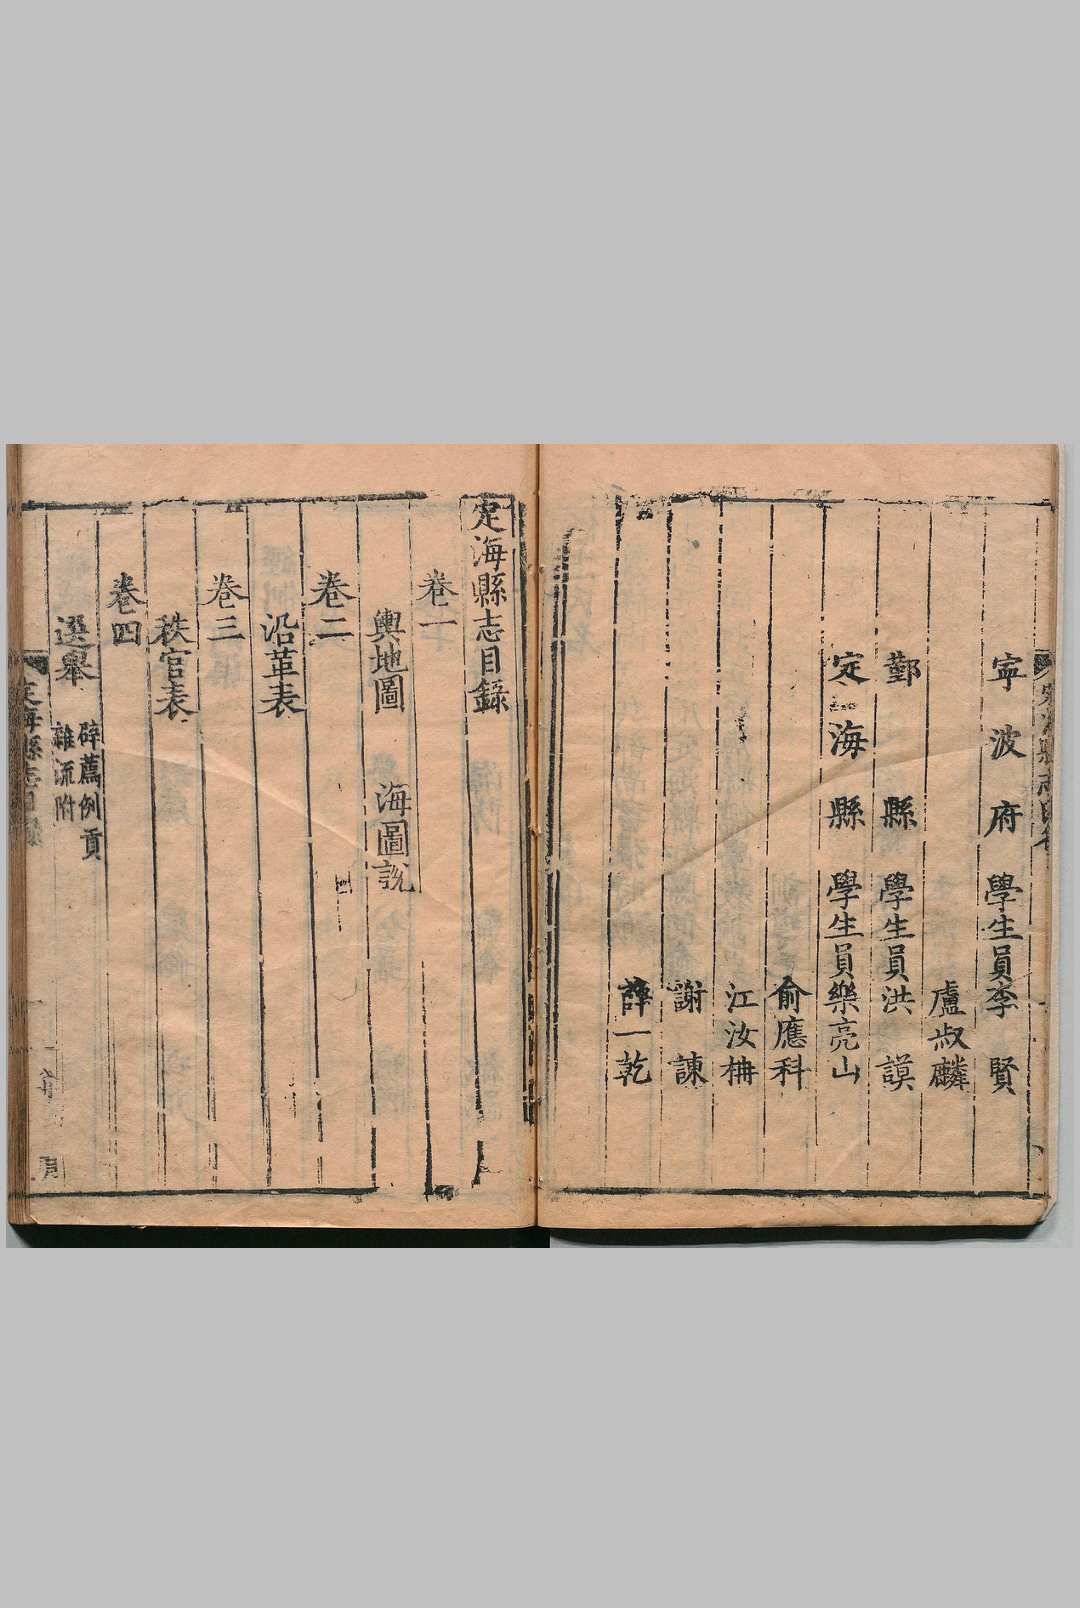 寧波府學生員李賢
盧叔麟
鄞縣學生員洪謨
定海縣學生員樂亮山
俞應科
江汝楠
謝諫
薛一乾
定海縣志目錄
卷一
輿地圖 海圖說
卷二
沿革表
卷三
秩官表
卷四
選舉 辟薦例貢
雜流附
定海縣志目錄